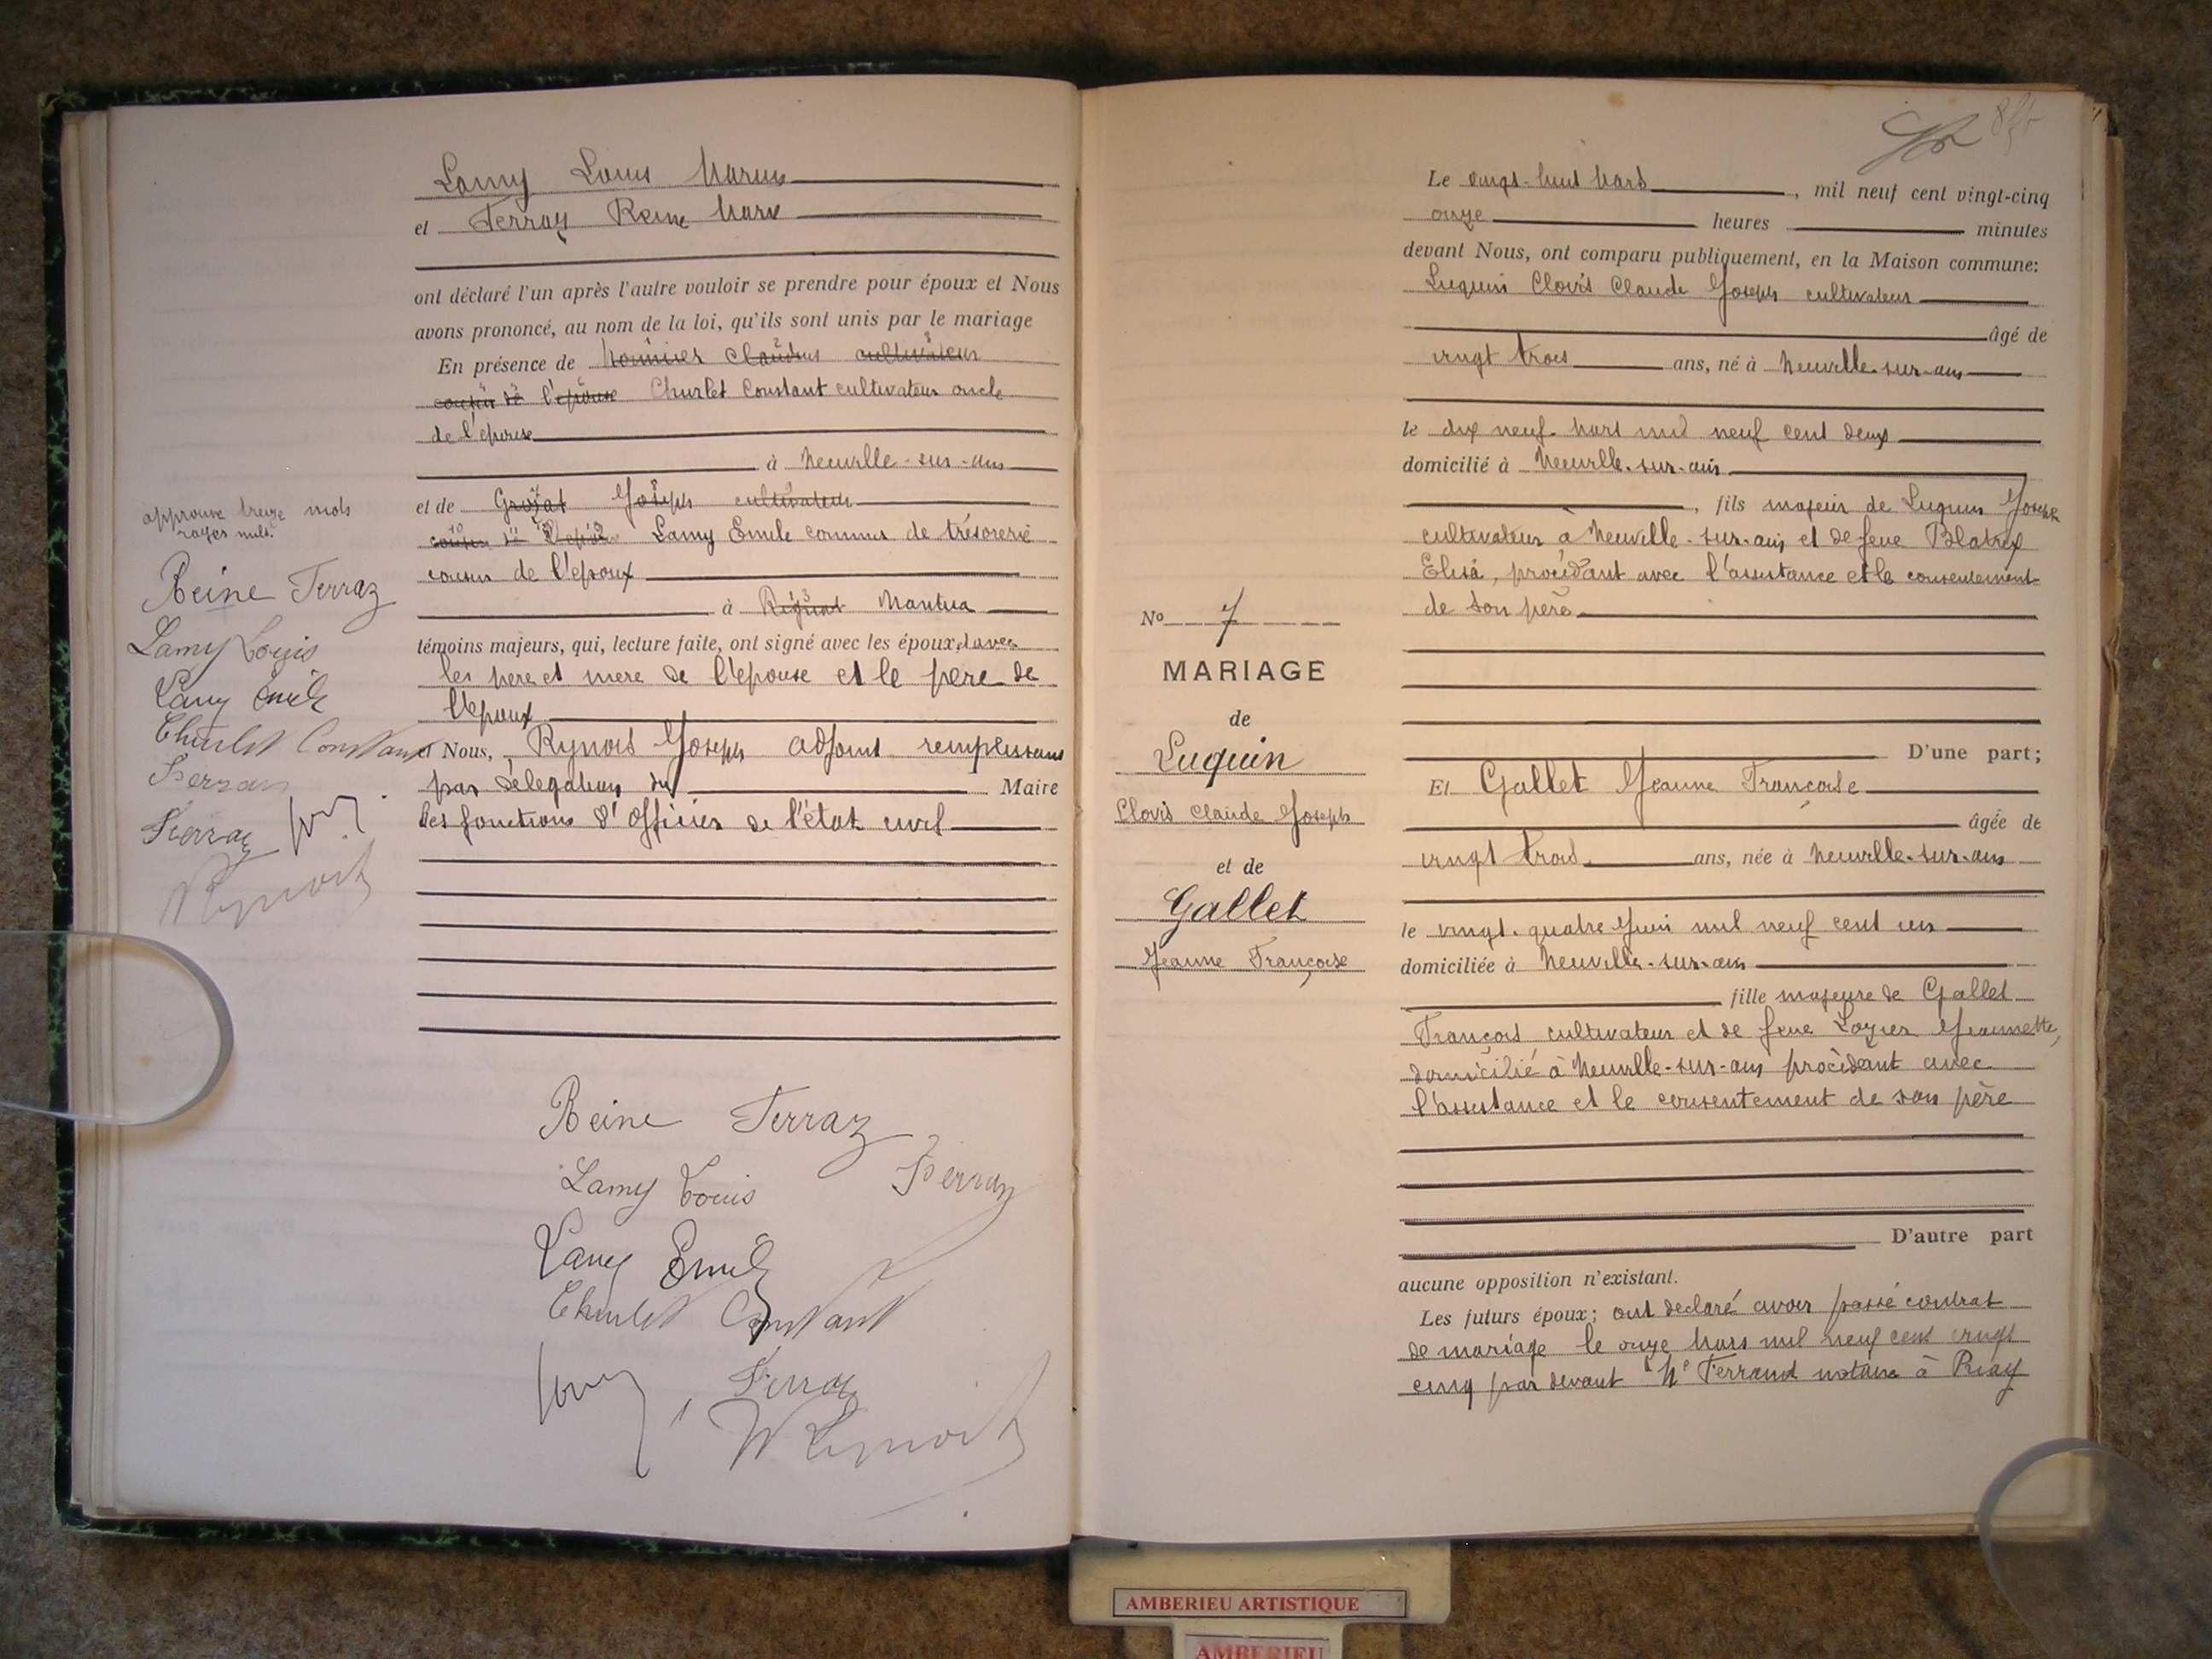 Lamy Louis Marius
et Terraz Reine Marie
ont déclaré l'un après l'autre vouloir se prendre pour époux et Nous
avons prononcé, au nom de la loi, qu'ils sont unis par le mariage
En présence de Monnier Claudius cultivateur
cousin de l'épouse Churlet Constant cultivateur oncle
de l'epouse
à Neuville-sur-ain
et de Grosat Joseph cultivateur
cousin de l'epoux Lamy Emile commis de trésorerie
cousin de l'epoux
à Rignat Nantua
témoins majeurs, qui, lecture faite, ont signé avec les époux, avec
les pere et mere de l'epouse et le pere de
l'epoux
et Nous, Rynois Joseph adjoint remplissant
par délégation du Maire
les fonctions d'Officier de l'état civil
approuve treize mots
rayés nuls.
Reine Terraz
Lamy Louis
Lamy Emile
Churlet Constant
Terraz
Reine Terraz
Lamy Louis
Terraz
Lamy Emile
Churlet Constant
Terraz
Le vingt-huit Mars, mil neuf cent vingt-cinq
onze heures minutes
devant Nous, ont comparu publiquement, en la Maison commune:
Luquin Clovis Claude Joseph cultivateur
âgé de
vingt trois ans, né à Neuville-sur-ain
le dix neuf Mars mil neuf cent deux
domicilié à Neuville-sur-ain
, fils majeur de Luquin Joseph
cultivateur à Neuville-sur-ain et de feue Blatrix
Elisa, procédant avec l'assistance et le consentement
de son père
No 7
MARIAGE
de
Luquin
Clovis Claude Joseph
et de
Gallet
Jeanne Françoise
D'une part;
Et Gallet Jeanne Françoise
âgée de
vingt trois ans, née à Neuville-sur-ain
le vingt-quatre Juin mil neuf cent un
domiciliée à Neuville-sur-ain
fille majeure de Gallet
François cultivateur et de feue Lozier Jeannette,
domicilié à Neuville-sur-ain procédant avec
l'assistance et le consentement de son père
D'autre part
aucune opposition n'existant.
Les futurs époux; ont declaré avoir passé contrat
de mariage le onze Mars mil neuf cent vingt
cinq par devant Me Ferrand notaire à Priay
AMBERIEU ARTISTIQUE
AMBERIEU